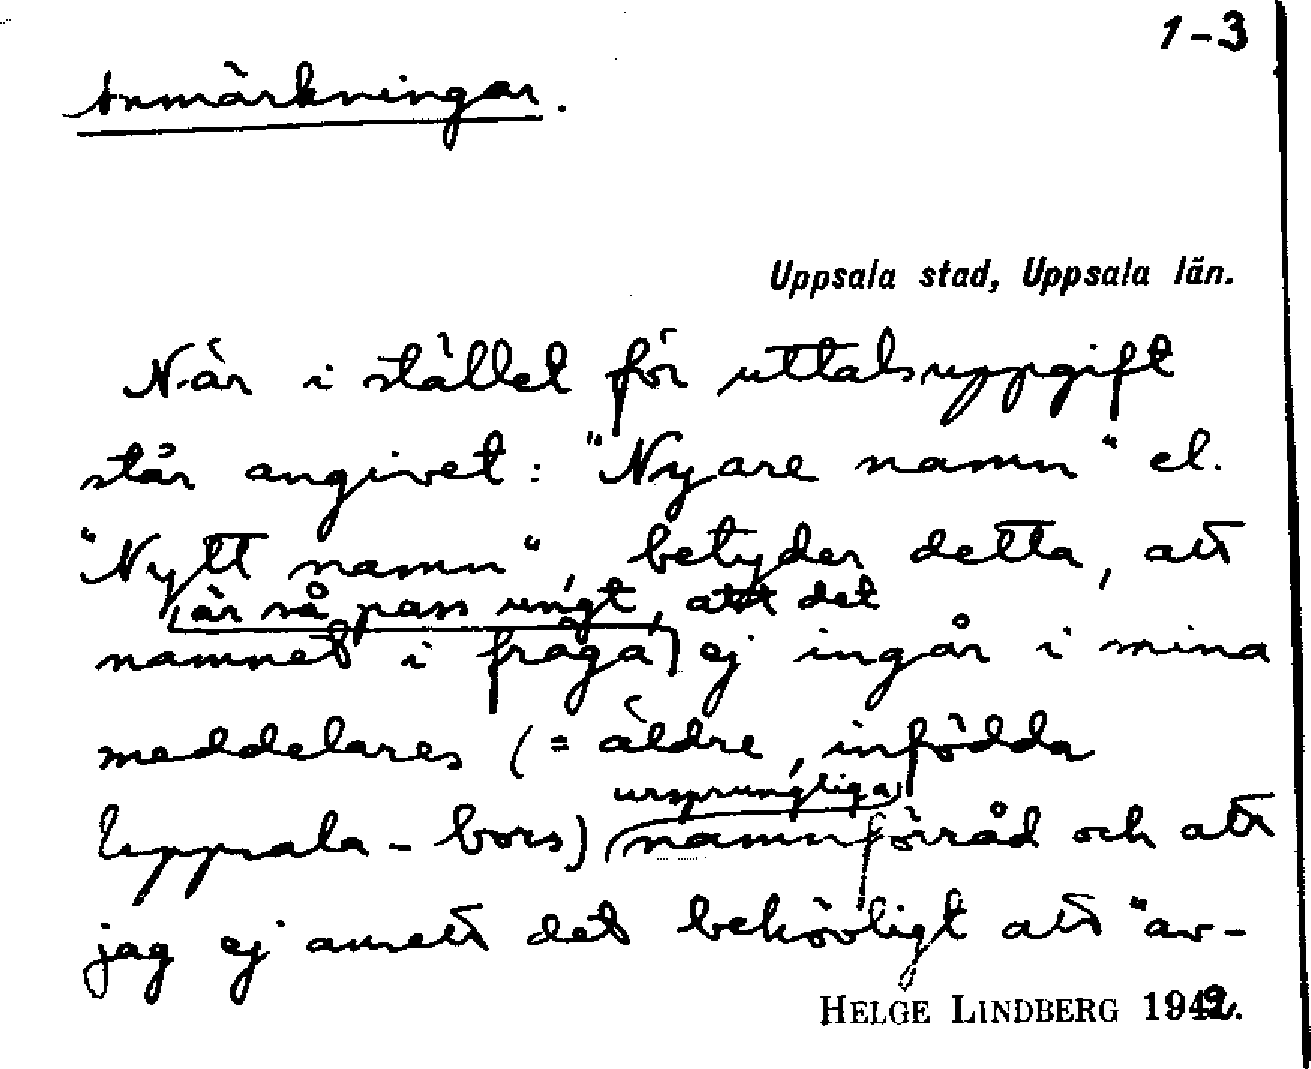 1-3
Anmärkningar.
Uppsala stad, Uppsala län.
När i stället för uttalsuppgift
står angivet: "Nyare namn" el.
"Nytt namn", betyder detta, att
är så pass ungt, att det
namnet i fråga ej ingår i mina
meddelares (= äldre, infödda
ursprungliga
Uppsala-bors) namnförråd och att
jag ej ansett det behövligt att "av-
HELGE LINDBERG 1942.